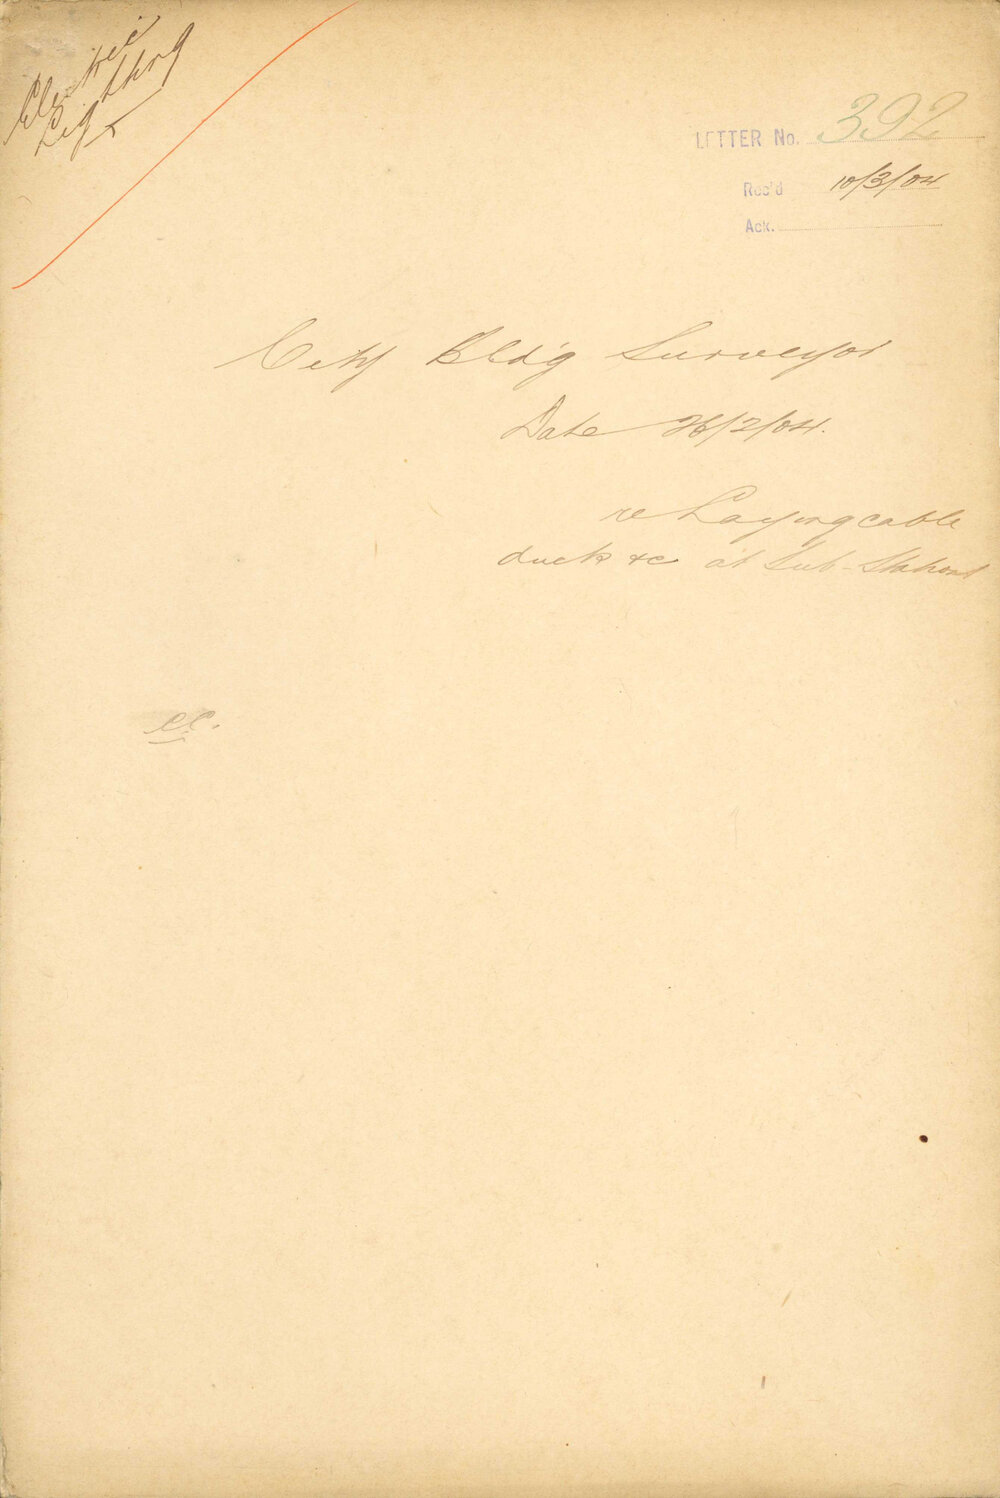 Electric
Lighting
LETTER No. 392
Rec'd 10/3/04
Ack.
City Bld'g Surveyor
Date 26/2/04.
re Laying cable
ducts &c at Sub-Station